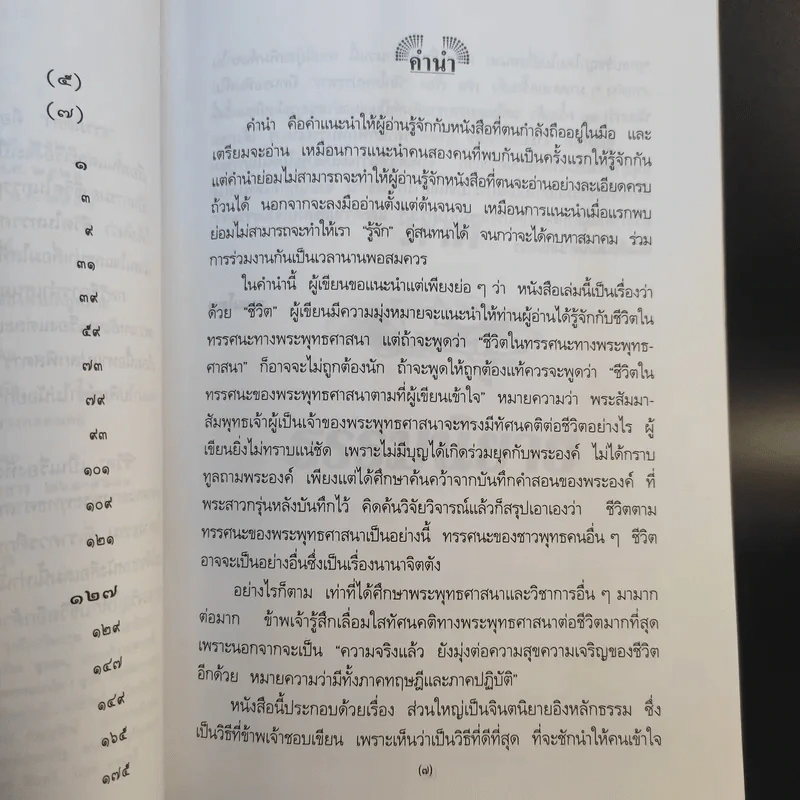 (๕)
(๗)
๑
๓
๙
๓๑
๓๙
๕๙
๗๓
๗๙
๙๓
๑๐๑
๑๐๙
๑๒๑
๑๒๗
๑๒๙
๑๔๗
๑๔๙
๑๖๕
๑๗๕
คำนำ
คำนำ คือคำแนะนำให้ผู้อ่านรู้จักกับหนังสือที่ตนกำลังถืออยู่ในมือ และ
เตรียมจะอ่าน เหมือนการแนะนำคนสองคนที่พบกันเป็นครั้งแรกให้รู้จักกัน
แต่คำนำย่อมไม่สามารถจะทำให้ผู้อ่านรู้จักหนังสือที่ตนจะอ่านอย่างละเอียดครบ
ถ้วนได้ นอกจากจะลงมืออ่านตั้งแต่ต้นจนจบ เหมือนการแนะนำเมื่อแรกพบ
ย่อมไม่สามารถจะทำให้เรา "รู้จัก" คู่สนทนาได้ จนกว่าจะได้คบหาสมาคม ร่วม
การร่วมงานกันเป็นเวลานานพอสมควร
ในคำนำนี้ ผู้เขียนขอแนะนำแต่เพียงย่อ ๆ ว่า หนังสือเล่มนี้เป็นเรื่องว่า
ด้วย "ชีวิต" ผู้เขียนมีความมุ่งหมายจะแนะนำให้ท่านผู้อ่านได้รู้จักกับชีวิตใน
ทรรศนะทางพระพุทธศาสนา แต่ถ้าจะพูดว่า "ชีวิตในทรรศนะทางพระพุทธ-
ศาสนา" ก็อาจจะไม่ถูกต้องนัก ถ้าจะพูดให้ถูกต้องแท้ควรจะพูดว่า "ชีวิตใน
ทรรศนะของพระพุทธศาสนาตามที่ผู้เขียนเข้าใจ" หมายความว่า พระสัมมา-
สัมพุทธเจ้าผู้เป็นเจ้าของพระพุทธศาสนาจะทรงมีทัศนคติต่อชีวิตอย่างไร ผู้
เขียนยิ่งไม่ทราบแน่ชัด เพราะไม่มีบุญได้เกิดร่วมยุคกับพระองค์ ไม่ได้กราบ
ทูลถามพระองค์ เพียงแต่ได้ศึกษาค้นคว้าจากบันทึกคำสอนของพระองค์ ที่
พระสาวกรุ่นหลังบันทึกไว้ คิดค้นวิจัยวิจารณ์แล้วก็สรุปเอาเองว่า ชีวิตตาม
ทรรศนะของพระพุทธศาสนาเป็นอย่างนี้ ทรรศนะของชาวพุทธคนอื่น ๆ ชีวิต
อาจจะเป็นอย่างอื่นซึ่งเป็นเรื่องนานาจิตตัง
อย่างไรก็ตาม เท่าที่ได้ศึกษาพระพุทธศาสนาและวิชาการอื่น ๆ มามาก
ต่อมาก ข้าพเจ้ารู้สึกเลื่อมใสทัศนคติทางพระพุทธศาสนาต่อชีวิตมากที่สุด
เพราะนอกจากจะเป็น "ความจริงแล้ว ยังมุ่งต่อความสุขความเจริญของชีวิต
อีกด้วย หมายความว่ามีทั้งภาคทฤษฎีและภาคปฏิบัติ"
หนังสือนี้ประกอบด้วยเรื่อง ส่วนใหญ่เป็นจินตนิยายอิงหลักธรรม ซึ่ง
เป็นวิธีที่ข้าพเจ้าชอบเขียน เพราะเห็นว่าเป็นวิธีที่ดีที่สุด ที่จะชักนำให้คนเข้าใจ
(๗)